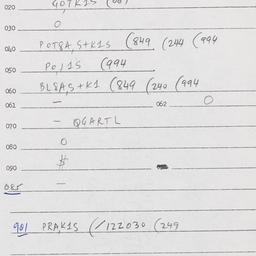 020 GOTK1S (061
030 O
040 POT8A,S+K1S (849 (244 (994
050 PO,1S (994
060 BL8A,S+K1 (849 (240 (994
061 — 062 O
070 — Q6ARTL
080 O
090 $
085 —
901 PRAK1S (/122030 (249